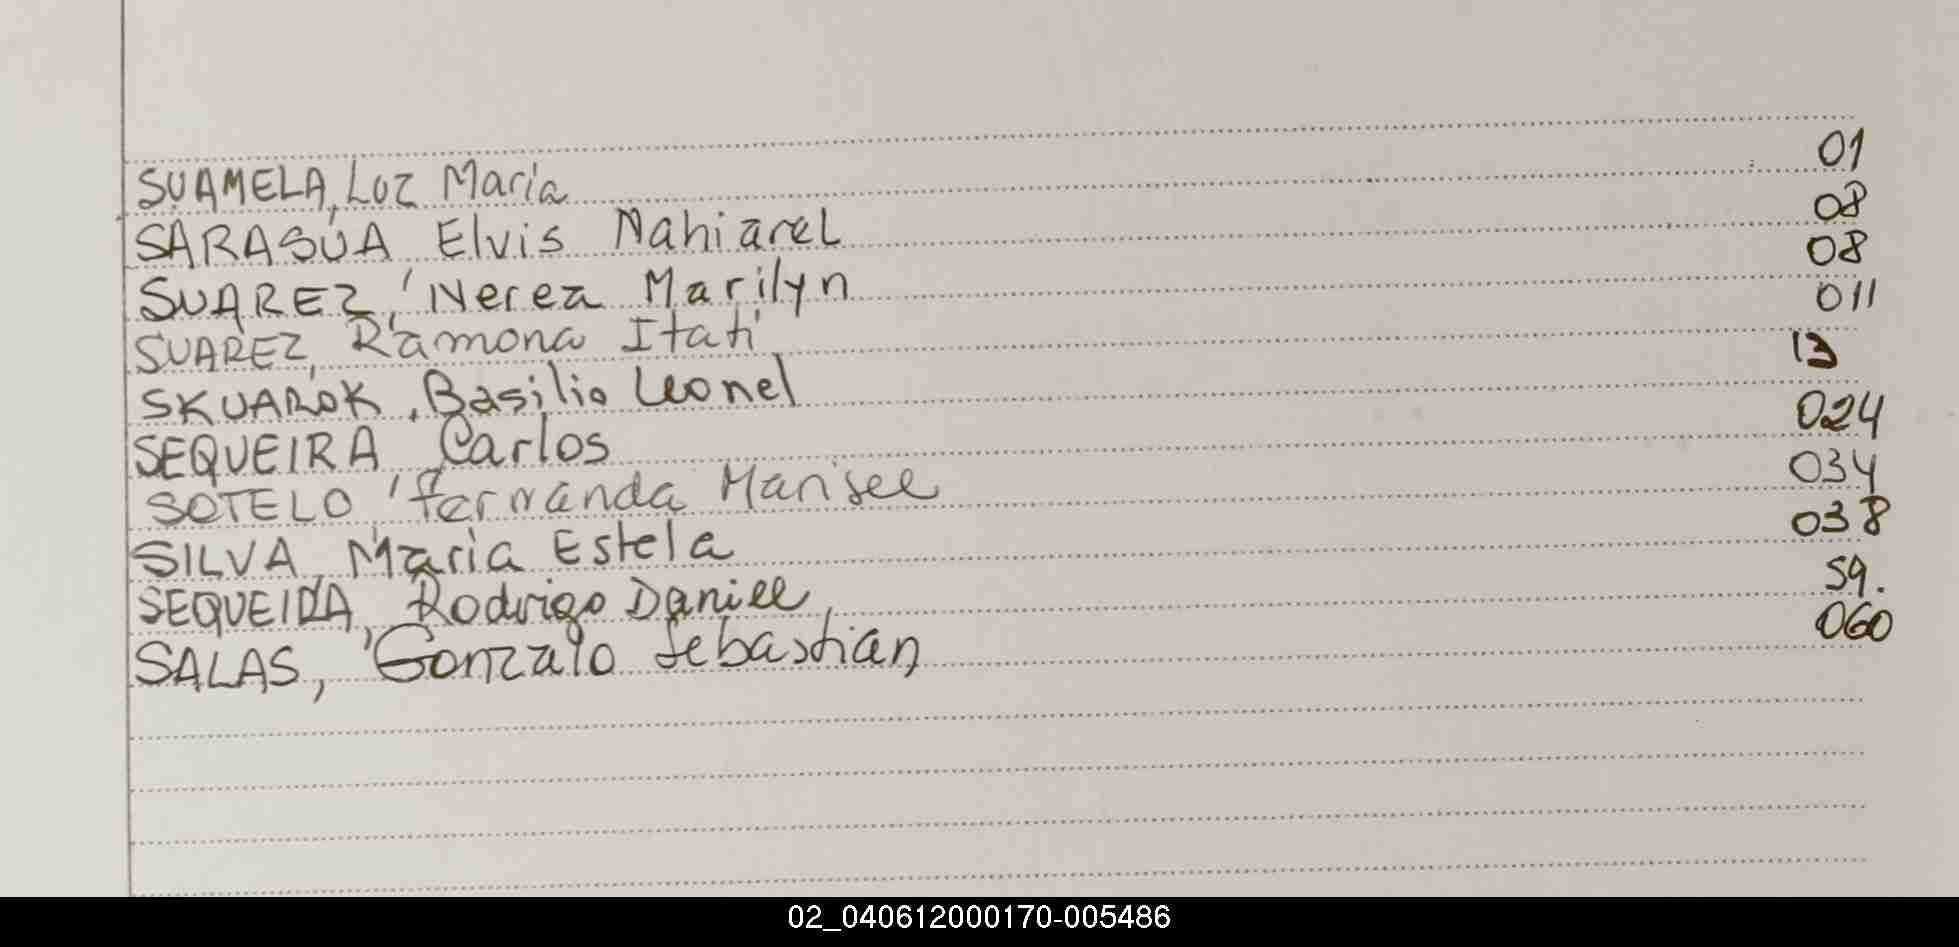 SUAMELA, Luz Maria 01
SARASUA Elvis Nahiarel 08
SUAREZ, Nerea Marilyn 08
SUAREZ, Ramona Itatí 011
SKUAROK, Basilio Leonel 13
SEQUEIRA Carlos 024
SOTELO, Fernanda Marisel 034
SILVA, Maria Estela 038
SEQUEIRA, Rodrigo Daniel, 59.
SALAS, Gonzalo Sebastian 060
02_040612000170-005486